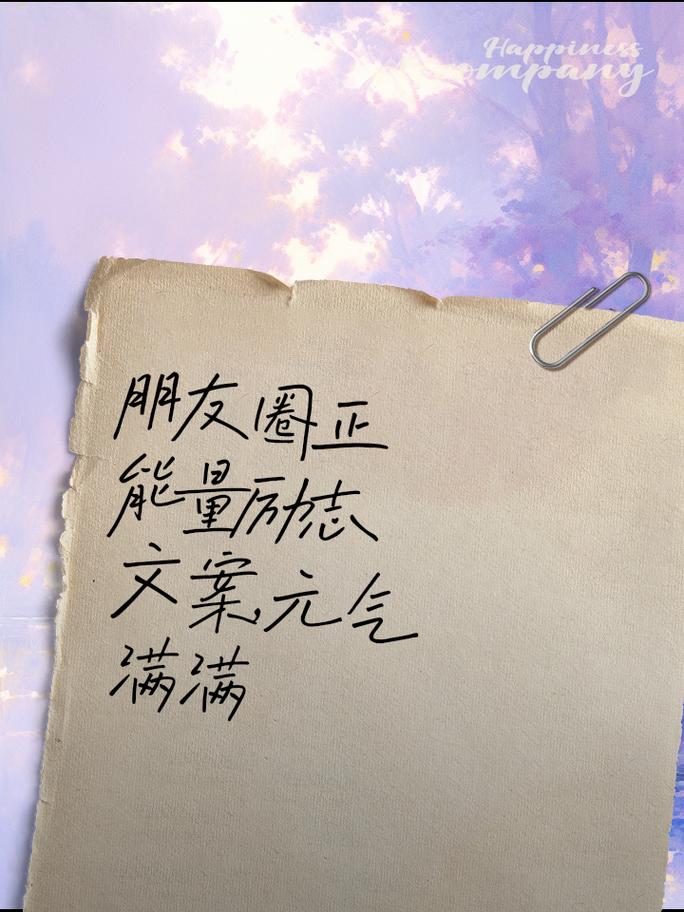 Happiness
ompany
朋友圈正
能量励志
文案,元气
满满